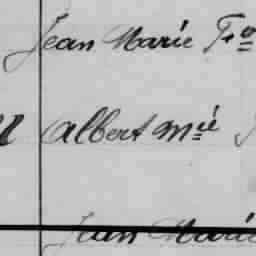 Jean Marie Fco
albert mie
Jean Marie